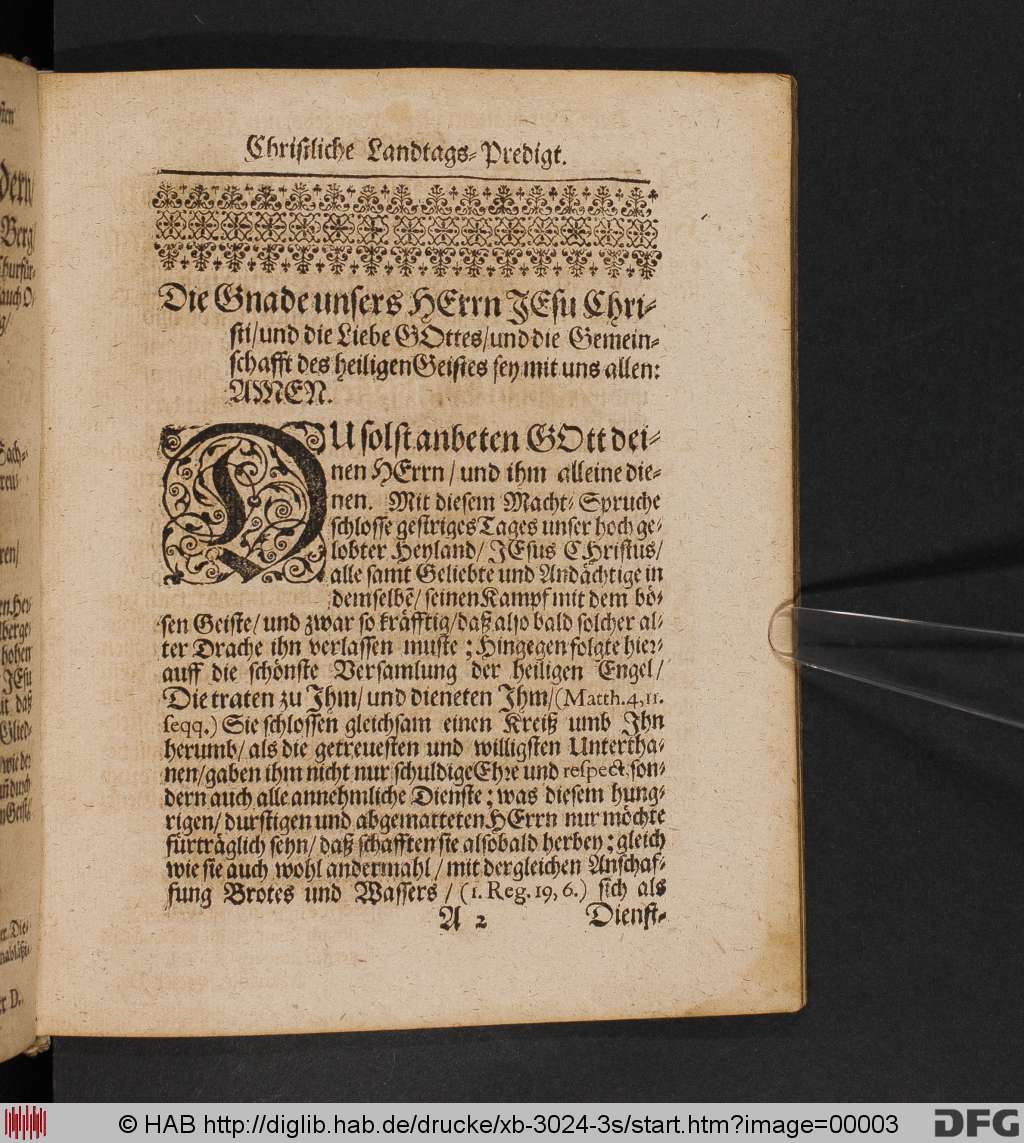 Christliche Landtags-Predigt.
Die Gnade unsers HErrn JEsu Chri-
sti/ und die Liebe GOttes/ und die Gemein-
schafft des heiligen Geistes sey mit uns allen:
AMEN.
DU solst anbeten GOtt dei-
nen HErrn/ und ihm alleine die-
nen. Mit diesem Macht-Spruche
schlosse gestriges Tages unser hoch ge-
lobter Heyland/ JEsus CHristus/
alle samt Geliebte und Andächtige in
demselbẽ/ seinen Kampf mit dem bö-
sen Geiste/ und zwar so kräfftig/ daß also bald solcher al-
ter Drache ihn verlassen muste; Hingegen folgte hier-
auff die schönste Versamlung der heiligen Engel/
Die traten zu Jhm/ und dieneten Jhm/ (Matth. 4, 11.
seqq.) Sie schlossen gleichsam einen Kreiß umb Jhn
herumb/ als die getreuesten und willigsten Untertha-
nen/ gaben ihm nicht nur schuldige Ehre und respect, son-
dern auch alle annehmliche Dienste; was diesem hung-
rigen/ durstigen und abgematteten HErrn nur möchte
fürträglich seyn/ daß schafften sie alsobald herbey; gleich
wie sie auch wohl andermahl/ mit dergleichen Anschaf-
fung Brotes und Wassers/ (1. Reg. 19, 6.) sich als
A 2 Dienst-
© HAB http://diglib.hab.de/drucke/xb-3024-3s/start.htm?image=00003
DFG